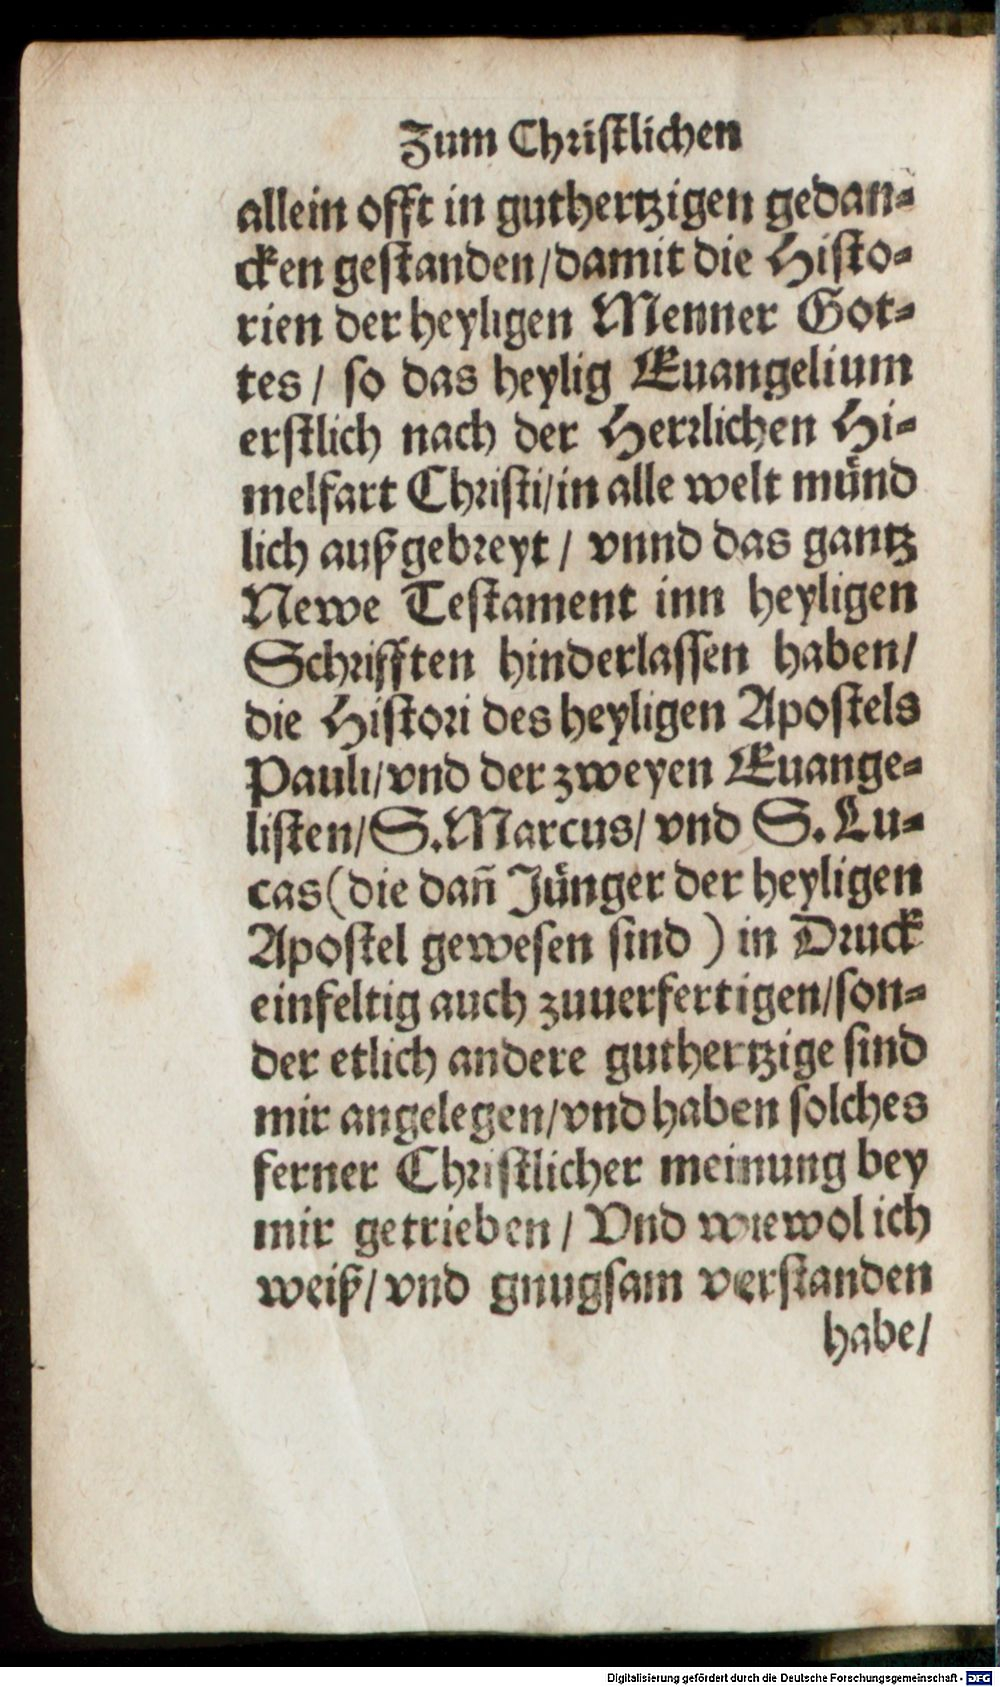 Zum Christlichen
allein offt in guthertzigen gedan⸗
cken gestanden/damit die Histo⸗
rien der heyligen Menner Got⸗
tes/ so das heylig Euangelium
erstlich nach der Herrlichen Hi⸗
melfart Christi/in alle welt münd
lich außgebreyt/ vnnd das gantz
Newe Testament inn heyligen
Schrifften hinderlassen haben/
die Histori des heyligen Apostels
Pauli/vnd der zweyen Euange⸗
listen/S.Marcus/ vnd S. Lu⸗
cas(die dañ Jünger der heyligen
Apostel gewesen sind) in Druck
einfeltig auch zuuerfertigen/son⸗
der etlich andere guthertzige sind
mir angelegen/vnd haben solches
ferner Christlicher meinung bey
mir getrieben/ Vnd wiewol ich
weiß/ vnd gnugsam verstanden
habe/
Digitalisierung gefördert durch die Deutsche Forschungsgemeinschaft - DFG